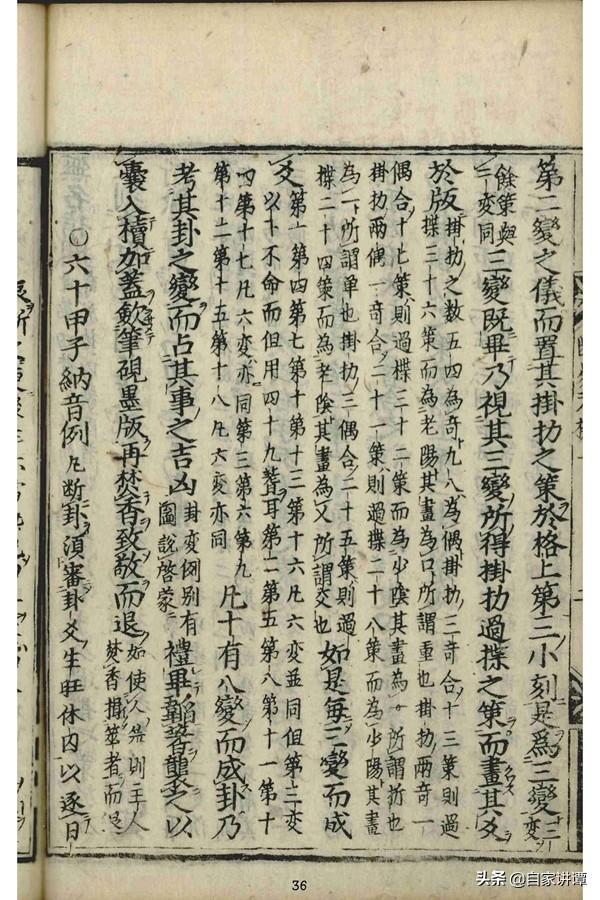 第二變之儀而置其掛扐之策於格上第三小刻是爲三變三變
餘策與二變同三變既畢乃視其三變所得掛扐過揲之策而畫其爻
於版掛扐之数五四為奇九八為偶掛扐三奇合十三策則過
揲三十六策而為老陽其畫為口所謂重也掛扐两奇一
偶合十七策則過揲三十二策而為少陰其畫為〃所謂拆也
掛扐两偶一奇合二十一策則過揲二十八策而為少陽其畫
為一所謂单也掛扐三偶合二十五策則過
揲二十四策而為老陰其畫為乂所謂交也如是每三變而成
爻第一第四第七第十第十三第十六凡六変並同但第三変
以下不命而但用四十九蓍耳第二第五第八第十一第十
四第十七凡六変亦同第三第六第九
第十二第十五第十八凡六変亦同凡十有八變而成卦乃
考其卦之變而占其事之吉凶卦变例別有
圖說啓蒙禮畢韜蓍襲之以
囊入櫝加蓋歛筆硯墨版再焚香致敬而退如使人筮則主人
焚香揖筮者而退
〇六十甲子納音例凡断卦須審卦爻生旺休囚以逐日
36
头条 @自家讲谭